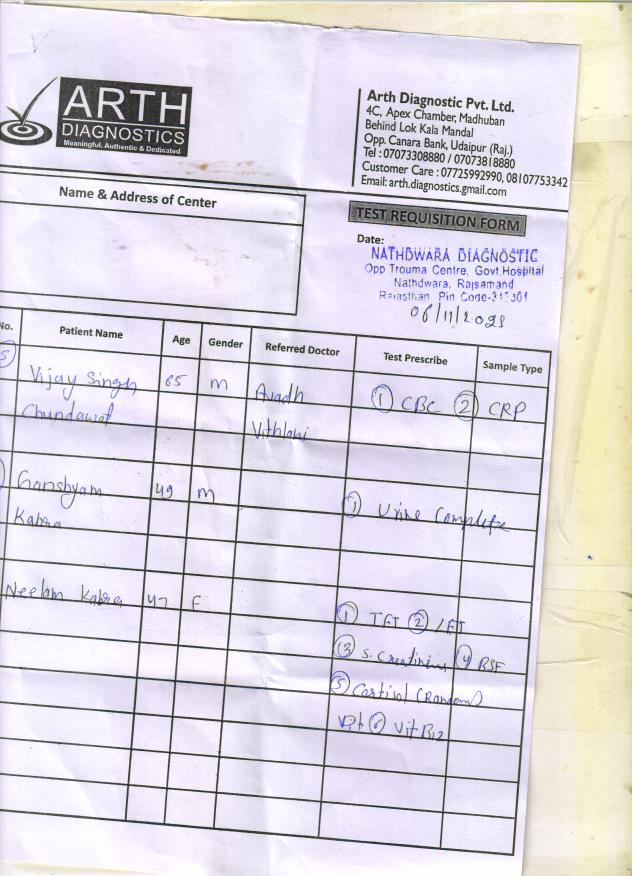 ARTH
DIAGNOSTICS
Meaningful, Authentic & Dedicated
Arth Diagnostic Pvt. Ltd.
4C, Apex Chamber, Madhuban
Behind Lok Kala Mandal
Opp. Canara Bank, Udaipur (Raj.)
Tel : 07073308880 / 07073818880
Customer Care : 07725992990, 08107753342
Email: arth.diagnostics.gmail.com
Name & Address of Center
TEST REQUISITION FORM
Date:
NATHDWARA DIAGNOSTIC
Opp Trouma Centre, Govt.Hospital
Nathdwara, Rajsamand
Rajasthan. Pin Code-313301
06/11/2023
No. Patient Name Age Gender Referred Doctor Test Prescribe Sample Type
Vijay Singh 65 M Avadh ① CBC ② CRP
Chundawat Vithlani
Ganshyam 49 M ① Urine Complete
Kabra
Neelam Kabra 47 F ① TFT ② LFT
③ S. Creatinine ④ BSF
⑤ Cortisol (Random)
⑥ Vit B12